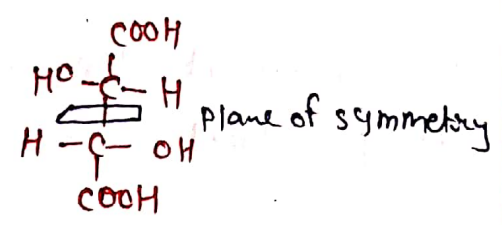 COOH
HO - C - H
Plane of symmetry
H - C - OH
COOH